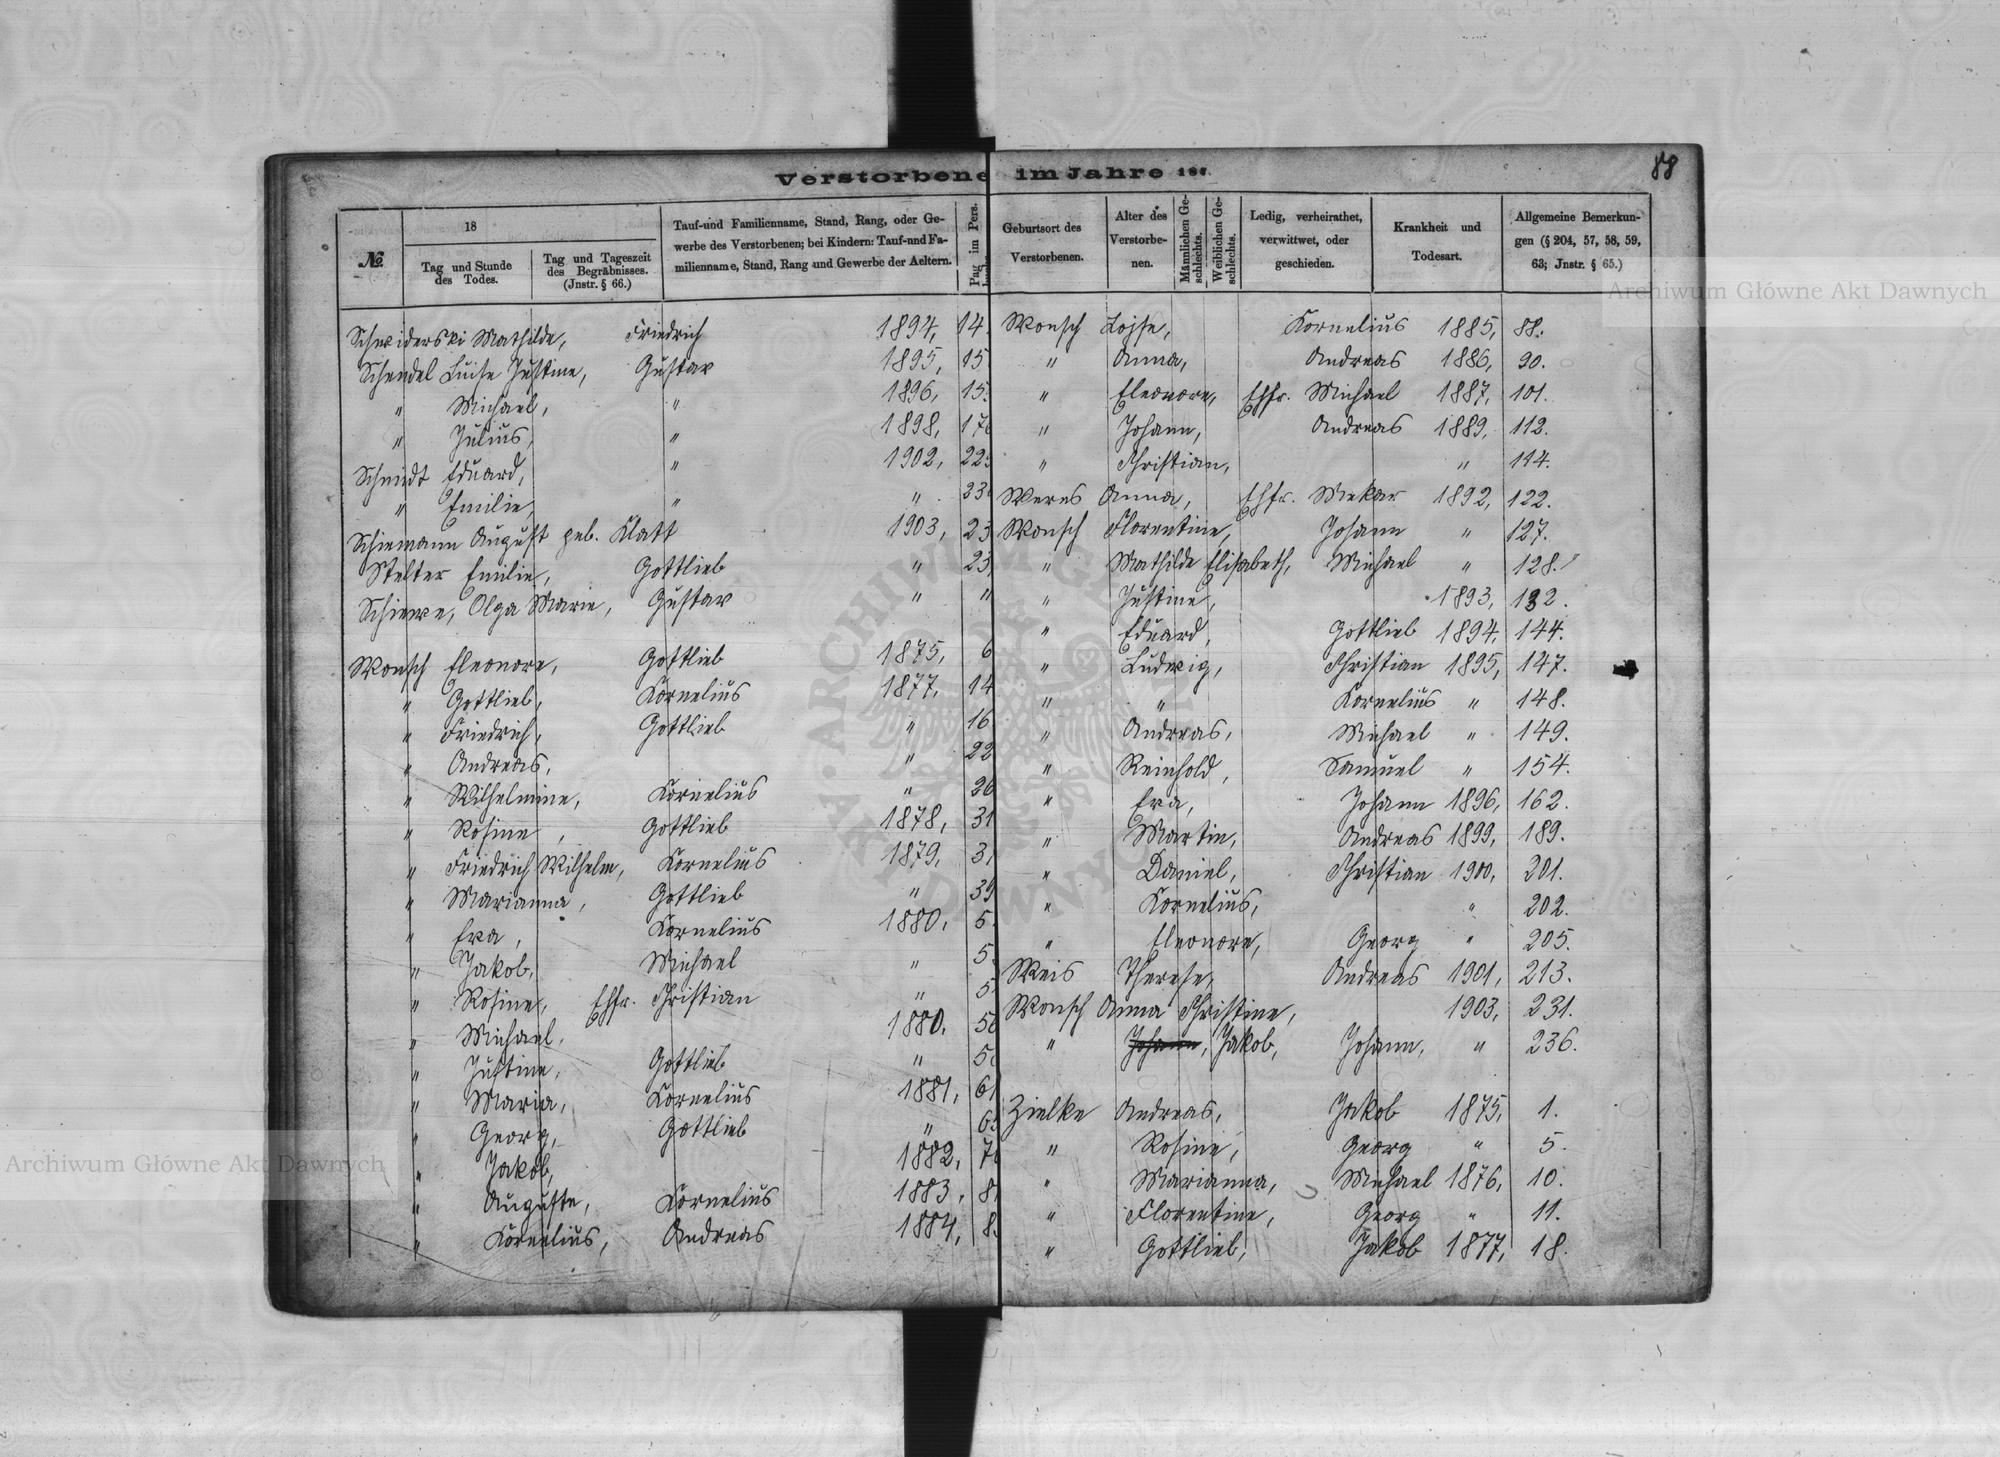 88
Verstorbene im Jahre 18
№
18
Tag und Stunde
des Todes.
Tag und Tageszeit
des Begräbnisses.
(Jnstr. § 66.)
Tauf-und Familienname, Stand, Rang, oder Ge-
werbe des Verstorbenen; bei Kindern: Tauf-nnd Fa-
milienname, Stand, Rang und Gewerbe der Aeltern.
Pag im Pers.
Geburtsort des
Verstorbenen.
Alter des
Verstorbe-
nen.
Männlichen Ge-
schlechts.
Weiblichen Ge-
schlechts.
Ledig, verheirathet,
verwittwet, oder
geschieden.
Krankheit und
Todesart.
Allgemeine Bemerkun-
gen (§ 204, 57, 58, 59,
63; Jnstr. § 65.)
Schwiderski Mathilde, Friedrich 1894, 14
Schendel Luise Justine, Gustav 1895, 15
" Michael, " 1896, 15
" Julius, " 1898, 17
Schmidt Eduard, " 1902, 22
" Emilie, " " 23
Schiemann August geb. Klatt 1903, 23
Stelter Emilie, Gottlieb " 23
Schiewe, Olga Marie, Gustav " "
Wonsch Eleonore, Gottlieb 1875, 6
" Gottlieb, Kornelius 1877, 14
" Friedrich, Gottlieb " 16
" Andreas, " 22
" Wilhelmine, Kornelius " 26
" Rosine, Gottlieb 1878, 31
" Friedrich Wilhelm, Kornelius 1879, 3
" Marianna, Gottlieb " 39
" Eva, Kornelius 1880, 5
" Jakob, Michael " 5
" Rosine, Ehfr. Christian " 5
" Michael, 1880, 5
" Justine, Gottlieb " 5
" Maria, Kornelius 1881, 61
" Georg, Gottlieb " 6
" Jakob, 1882, 7
" Auguste, Kornelius 1883, 8
" Kornelius, Andreas 1884, 8
Wonsch Lojse, Kornelius 1885, 88.
" Anna, Andreas 1886, 90.
" Eleonore, Ehfr. Michael 1887, 101.
" Johann, Andreas 1889, 112.
" Christian, " 114.
Werns Anna, Ehfr. Mekar 1892, 122.
Wonsch Florentine, Johann " 127.
" Mathilde Elisabeth, Michael " 128.
" Justine, 1893, 132.
" Eduard, Gottlieb 1894, 144.
" Ludwig, Christian 1895, 147.
" " Kornelius " 148.
" Andreas, Michael " 149.
" Reinhold, Samuel " 154.
" Eva, Johann 1896, 162.
" Martin, Andreas 1899, 189.
" Daniel, Christian 1900, 201.
" Kornelius, " 202.
" Eleonore, Georg " 205.
Weis Therese, Andreas 1901, 213.
Wonsch Anna Christine, 1903, 231.
" Johann, Jakob, Johann, " 236.
Zielke Andreas, Jakob 1875, 1.
" Rosine, Georg " 5.
" Marianna, Michael 1876, 10.
" Florentine, Georg " 11.
" Gottlieb, Jakob 1877, 18.
Archiwum Główne Akt Dawnych
Archiwum Główne Akt Dawnych